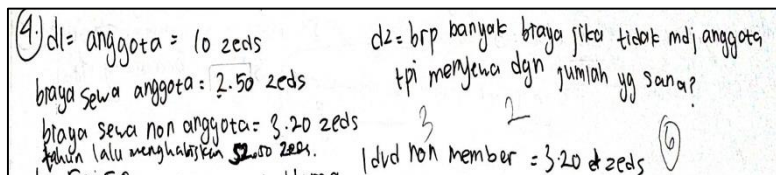 4.) d1 = anggota = 10 zeds
biaya sewa anggota = 2.50 zeds
biaya sewa non anggota = 3.20 zeds
tahun lalu menghabiskan 52.50 zeds.
d2 = brp banyak biaya jika tidak mdj anggota
tpi menyewa dgn jumlah yg sama?
3 2
1 dvd non member = 3.20 zeds 6